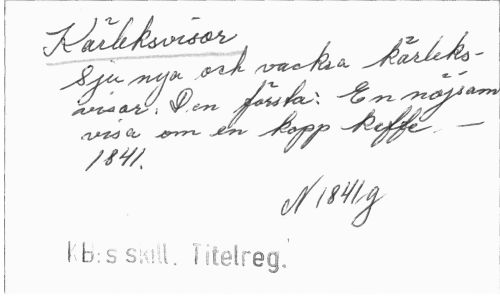 Kärleksvisor
Sju nya och vackra kärleks-
visor. Den första: En nöjsam
visa om en kopp kaffe. —
1841.
N 1841g
KB:s skill. Titelreg.